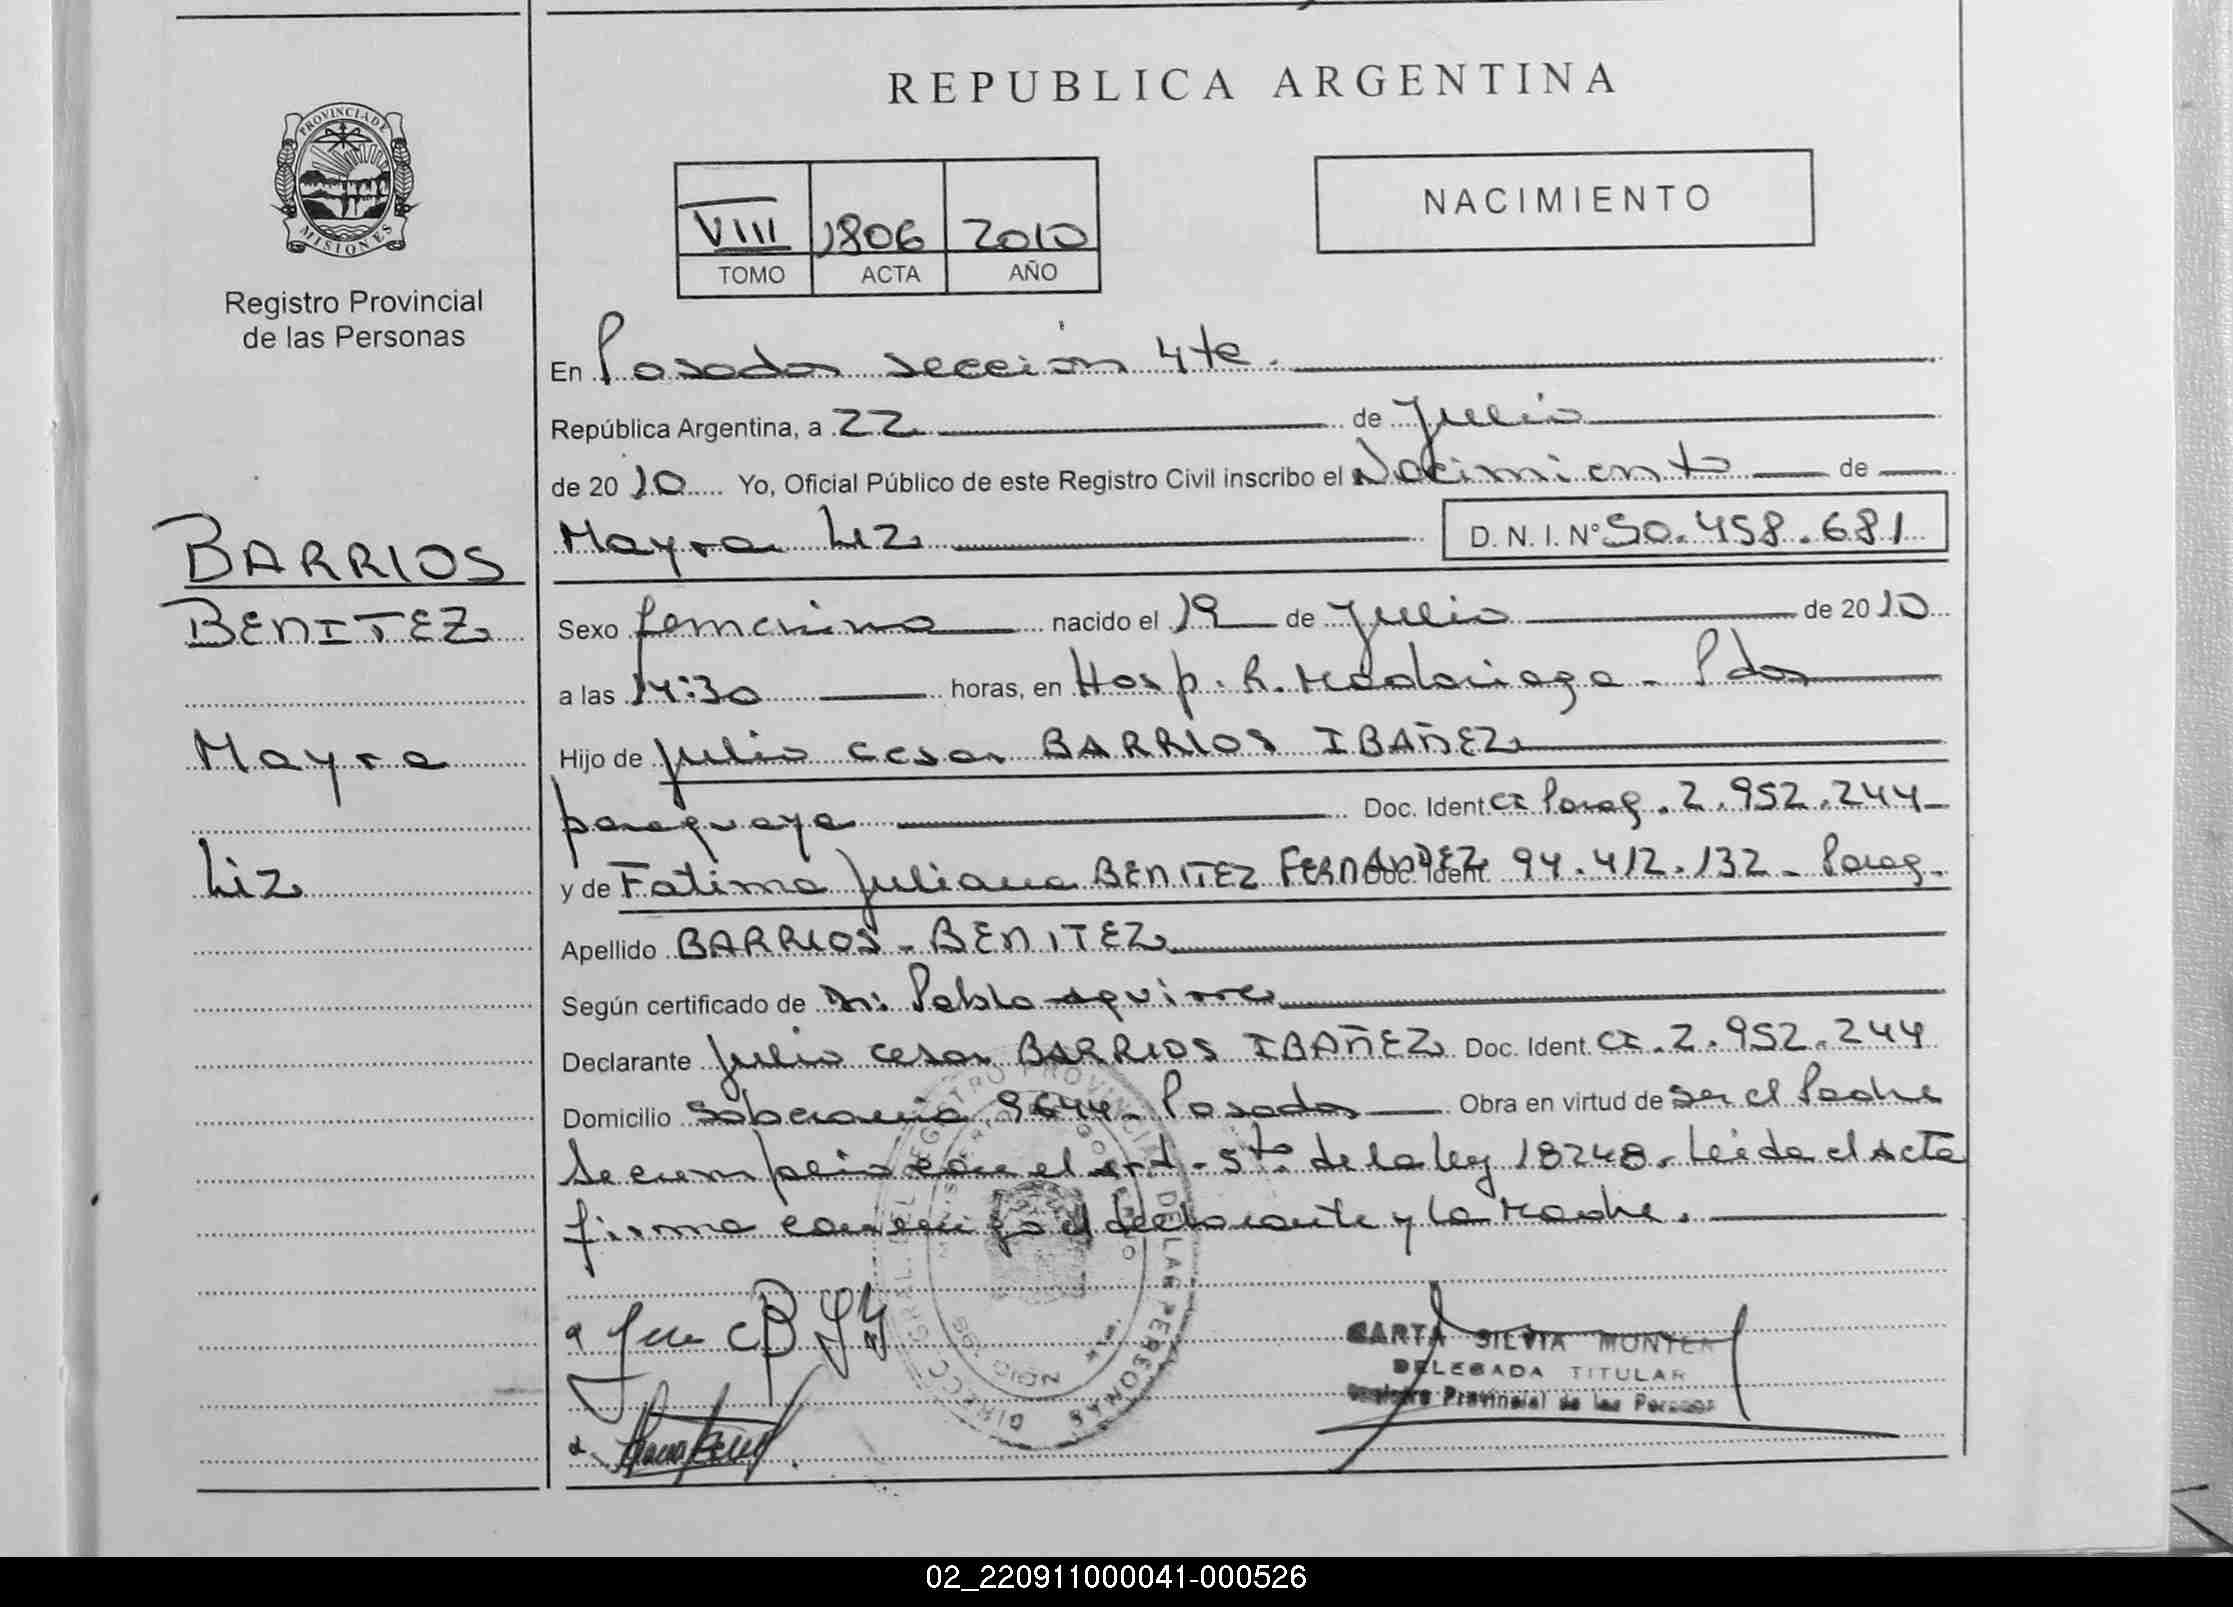 REPUBLICA ARGENTINA
PROVINCIA DE
MISIONES
Registro Provincial
de las Personas
NACIMIENTO
VIII 1806 2010
TOMO ACTA AÑO
En Posadas sección 4te.
República Argentina, a 22 de Julio
de 2010 Yo, Oficial Público de este Registro Civil inscribo el Nacimiento de
Mayra Liz D. N. I. Nº 50.458.681
BARRIOS
BENITEZ
Mayra
Liz
Sexo femenino nacido el 19 de Julio de 2010
a las 14:30 horas, en Hosp. R. Madariaga - Pdas
Hijo de Julio Cesar BARRIOS IBAÑEZ
paraguaya Doc. Ident. CI Parag. 2.952.244
y de Fatima Juliana BENITEZ FERNANDEZ Doc. Ident. 94.412.132 - Parag.
Apellido BARRIOS - BENITEZ
Según certificado de Dr: Pablo Aguirre
Declarante Julio Cesar BARRIOS IBAÑEZ Doc. Ident. CI. 2.952.244
Domicilio Soberania 9644 - Posadas Obra en virtud de ser el Padre
Se cumplio con el art. 5to de la ley 18248. Leida el Acta
firma conmigo el declarante y la Madre.
DIRECC. GRAL. DEL REGISTRO PROVINCIAL DE LAS PERSONAS
SILVIA
DELEGADA TITULAR
Registro Provincial de las Personas
02_220911000041-000526